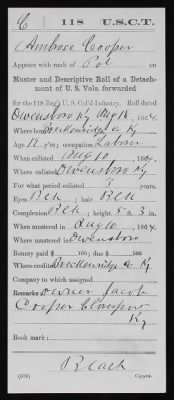 C | 118 | U.S.C.T.
Ambrose Cooper
Appears with rank of Pvt on
Muster and Descriptive Roll of a Detach-
ment of U. S. Vols. forwarded
for the 118 Reg't U. S. Col'd Infantry. Roll dated
Owensboro Ky Aug 18, 1864.
Where born Breckenridge Co Ky
Age y'rs; occupation Laborer
When enlisted Aug 10, 1864.
Where enlisted Owensboro Ky
For what period enlisted 3 years.
Eyes Blk; hair Blk
Complexion Blk; height 5 ft. 3 in.
When mustered in Aug 10, 1864.
Where mustered in Owensboro
Bounty paid $ 100; due $ 100
Where credited Breckenridge Co Ky
Company to which assigned
Remarks: Owner Jacob
Cooper Cloverport
Ky
Book mark:
Black
Copyist.